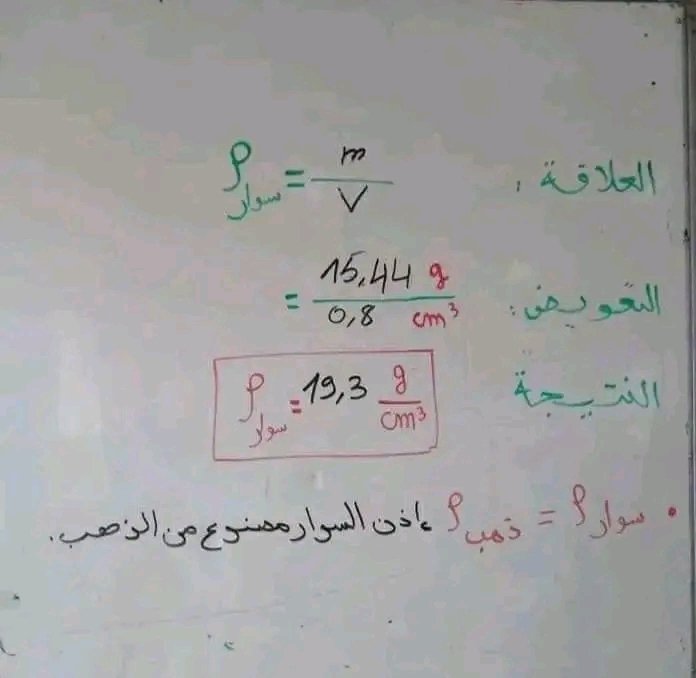 العلاقة : ρ سوار = m / V
التعويض : = 15,44 g / 0,8 cm³
النتيجة ρ سوار = 19,3 g / cm³
• ρ سوار = ρ ذهب ، اذن السوار مصنوع من الذهب.